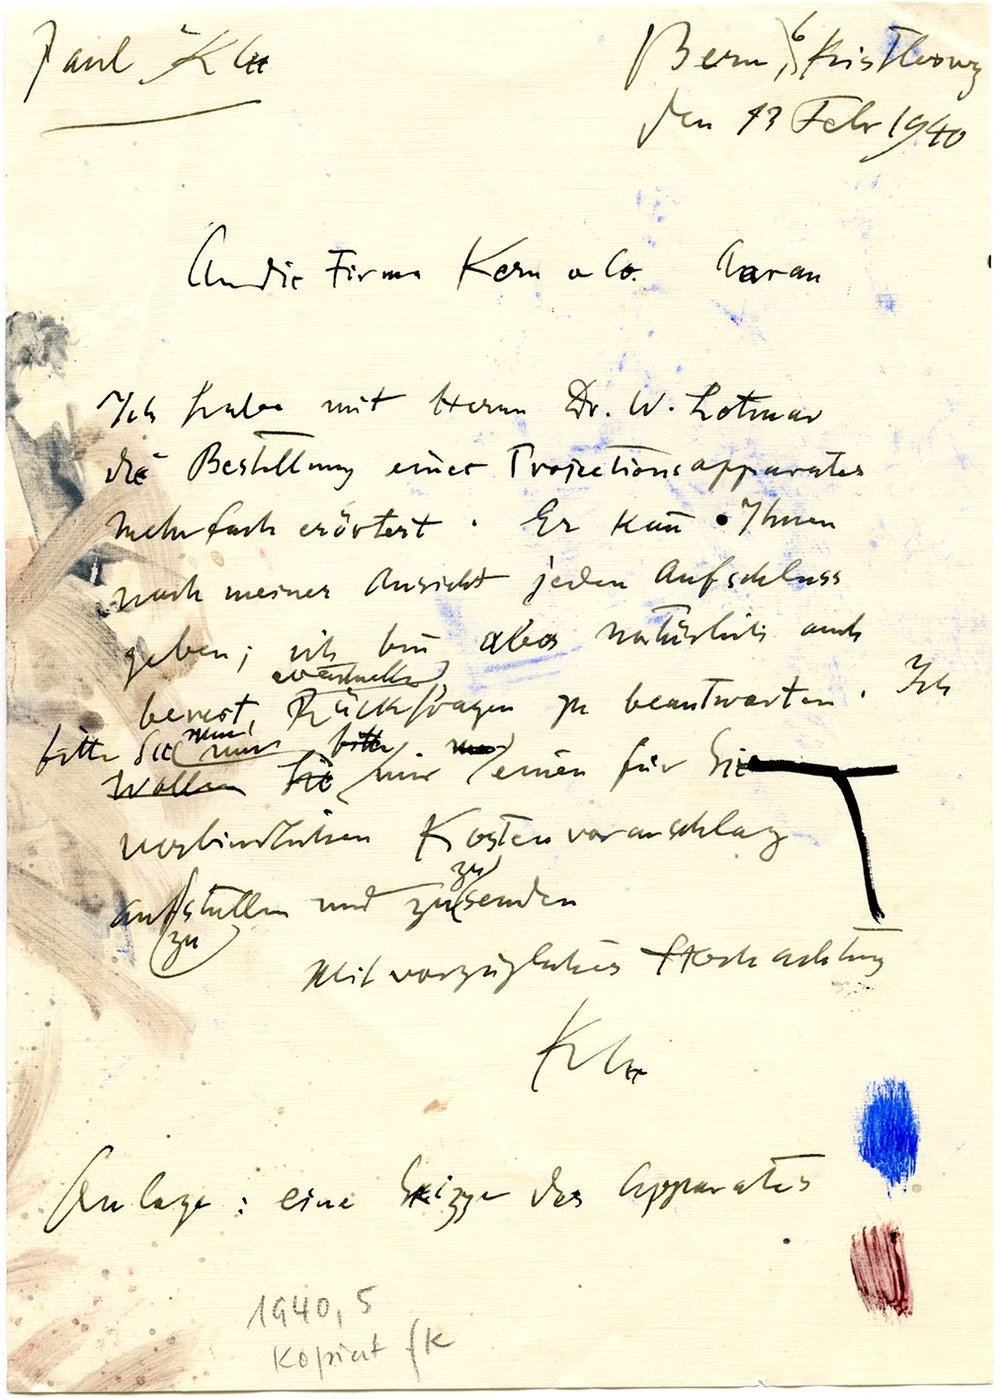 Paul Klee
Bern, 6 Kistlerweg
den 13 Febr 1940
An die Firma Kern u Co. Aarau
Ich habe mit Herrn Dr. W. Lotmar
die Bestellung eines Projectionsapparates
mehrfach erörtert. Er kan̄ Ihnen
nach meiner Ansicht jeden Aufschluss
geben; ich bin̄ aber natürlich auch
eventuelle
bereit, Rückfragen zu beantworten. Ich
bitte Sie nun bitte
Wollen Sie mir einen für Sie
verbindlichen Kostenvoranschlag
aufstellen und zusenden
zu
zu
Mit vorzüglicher Hochachtung
Klee
Anlage: eine Skizze des Apparates
1940, 5
Kopiert fK